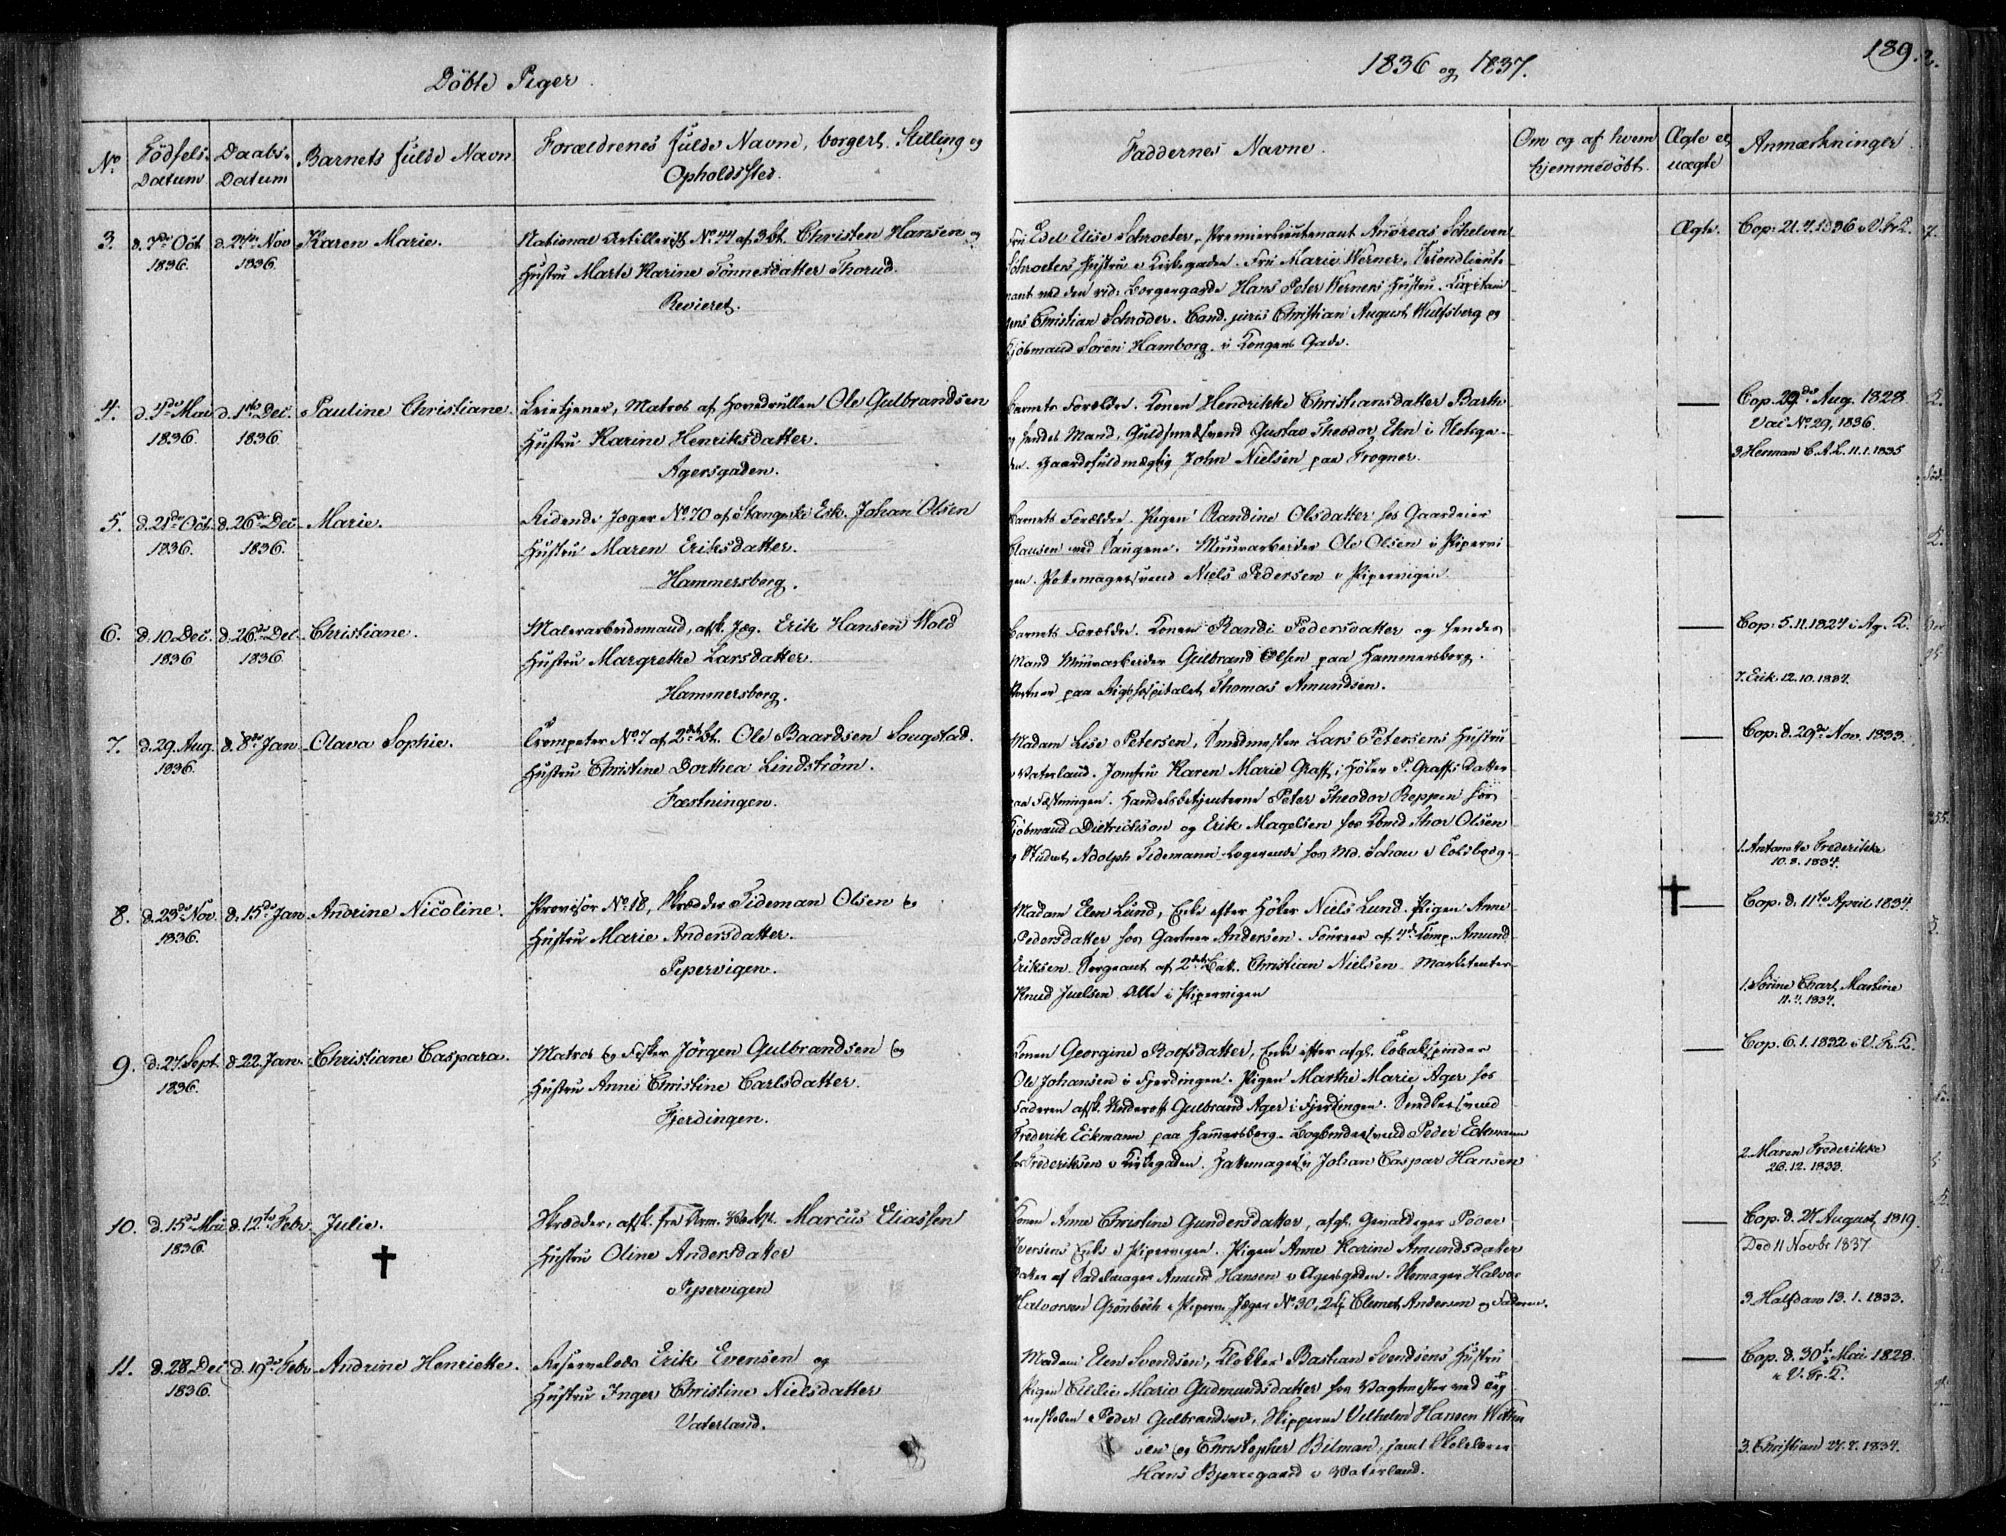 Döbte Piger.
1836 og 1837.
189.
No
Födsels-
Datum
Daabs-
Datum
Barnets fulde Navn
Forældrenes fulde Navne, borgerl. Stilling og
Opholdssted.
Faddernes Navne.
Om og af hvem
hjemmedöbt.
Ægte el.
uægte
Anmærkninger.
3.
d. 7de Oct.
1836.
d. 27de Nov
1836.
Karen Marie.
National Artillerist No 44 af 3 Bt. Christen Hansen og
Hustru Marte Karine Tönnesdatter Thorud.
Revieret.
Fru Edel Elise Schroeter, Premierlieutenant Andreas Schelven
Schroeters Hustru i Kirkegaden. Fru Marie Werner, Secondlieute
nant ved den rid: Borgergarde Hans Peter Werners Hustru. Kapitain
Jens Christian Schröder. Cand. juris Christian August Wulfsberg og
Kjöbmand Sören Hamborg. i Kongens Gade.
Ægte.
Cop: 21.7.1836 i V. Fr. K.
4.
d. 4de Mai
1836.
d. 1ste Dec.
1836.
Pauline Christiane.
Leietjener, Matros af Hovedrullen Ole Gulbrandsen
Hustru Karine Henriksdatter.
Agersgaden.
Barnets Forældre. Konen Hendrikke Christiansdatter Barth
og hendes Mand, Guldsmedsvend Gustav Theodor Ehn i Slotsga-
den. Gaardsfuldmægtig John Nielsen paa Frogner.
Cop. 29de Aug. 1828
Vac No 29, 1836.
3. Herman C. A. L. 11.1.1835
5.
d. 21de Oct.
1836.
d. 26de Dec
1836.
Marie.
Ridende Jæger No 70 af Stangeske Esk. Johan Olsen
Hustru Maren Eriksdatter.
Hammersborg.
Barnets Forældre. Pigen Randine Olsdatter hos Gaardeier
Clausen ved Saugene. Muurarbeider Ole Olsen i Pipervi
gen. Pottemagersvend Niels Pedersen i Pipervigen.
6.
d. 10 Dec.
1836
d. 26de Dec.
1836.
Christiane.
Malerarbeidsmand, afsk. Jæg. Erik Hansen Wold
Hustru Margrethe Larsdatter.
Hammersborg.
Barnets Forældre. Konen Randi Pedersdatter og hendes
Mand Muurarbeider Gulbrand Olsen paa Hammersborg.
Portner paa Rigshospitalet Thomas Amundsen.
Cop: 5.11.1827 i Ag. K.
7. Erik. 12.10.1834.
7.
d. 29. Aug.
1836.
d. 8de Jan.
Olava Sophie.
Trompeter No 7 af 2det Bt. Ole Baardsen Sougstad.
Hustru Christine Dorthea Lindström.
Fæstningen.
Madam Lise Petersen, Smedmester Lars Petersens Hustru
i Vaterland. Jomfru Karen Marie Graff, Höker P. Graffs Datter
paa Fæstningen. Handelsbetjenterne Peter Theodor Reppen hos
Kjöbmand Dietrichson og Erik Magelsen hos Kbmd Thor Olsen
Student Adolph Tidemann Logerende hos Md. Schou i Toldbodg.
Cop: d. 29de Nov. 1833.
1. Antonette Frederikke
10.3.1834.
8.
d. 23de Nov.
1836.
d. 15de Jan
Andrine Nicoline.
Provisor No 18, Skrædder Tideman Olsen og
Hustru Marie Andersdatter.
Pipervigen.
Madam Elen Lund, Enke efter Höker Niels Lund. Pigen Anne
Pedersdatter hos Gartner Andersen. Fourer af 4de Komp. Amund
Eriksen. Sergeant af 2det Batt. Christian Nielsen. Marketenter
Knud Juelsen. Alle i Pipervigen
Cop. d. 11te April 1834.
1. Sörine Charl. Martine
11.4.1834.
9.
d. 27. Sept.
1836.
d. 22. Jan.
Christiane Caspara.
Matros og Fisker Jörgen Gulbrandsen og
Hustru Anne Christine Carlsdatter.
Fjerdingen.
Konen Georgine Rolfsdatter, Enke efter afgl. Tobakspinder
Ole Johansen i Fjerdingen. Pigen Marthe Marie Ager hos
Faderen afsk. Underoff. Gulbrand Ager i Fjerdingen.
Frederik Eckmann paa Hammersborg. Bogbindersvend Peder Eckmann
hos Frederiksen i Kirkegaden. Hattemagersv. Johan Caspar Hansen
Cop. 6.1.1832 i V. Fr. K.
2. Maren Frederikke
26.12.1833.
10.
d. 15de Mai
1836.
d. 12te Febr.
Julie.
Skrædder, afsk. fra Arm. Marcus Eliassen
Hustru Oline Andersdatter
Pipervigen
Konen Anne Christine Gundersdatter, afgl. Gevaldiger Peder
Iversens Enke i Pipervigen. Pigen Anne Karine Amundsdatter
Datter af Sadelmager Amund Hansen i Agersgaden. Skomager Halvor
Halvorsen Grönbech i Piperv. Jæger No 30, Clemet Andersen og Faderen.
Cop. d. 27 August 1819.
Död 11 Novbr 1837
9. Halfdan 13.1.1833.
11.
d. 28. Dec.
1836.
d. 19de Febr.
Andrine Henriette.
Reservelods Erik Evensen og
Hustru Inger Christine Nielsdatter
Vaterland.
Madam Elen Svendsen, Klokker Bastian Svendsens Hustru
Pigen Cicilie Marie Gudmundsdatter hos Vagtmester ved Teg
neskolen Peder Gulbrandsen, Skipperne Vilhelm Hansen
og Christopher Bilman, samt Skolelærer
Hans Bjerregaard i Vaterland.
Cop. d. 30te Mai 1828.
i V. Fr. K.
3. Christian 27.7.1834.